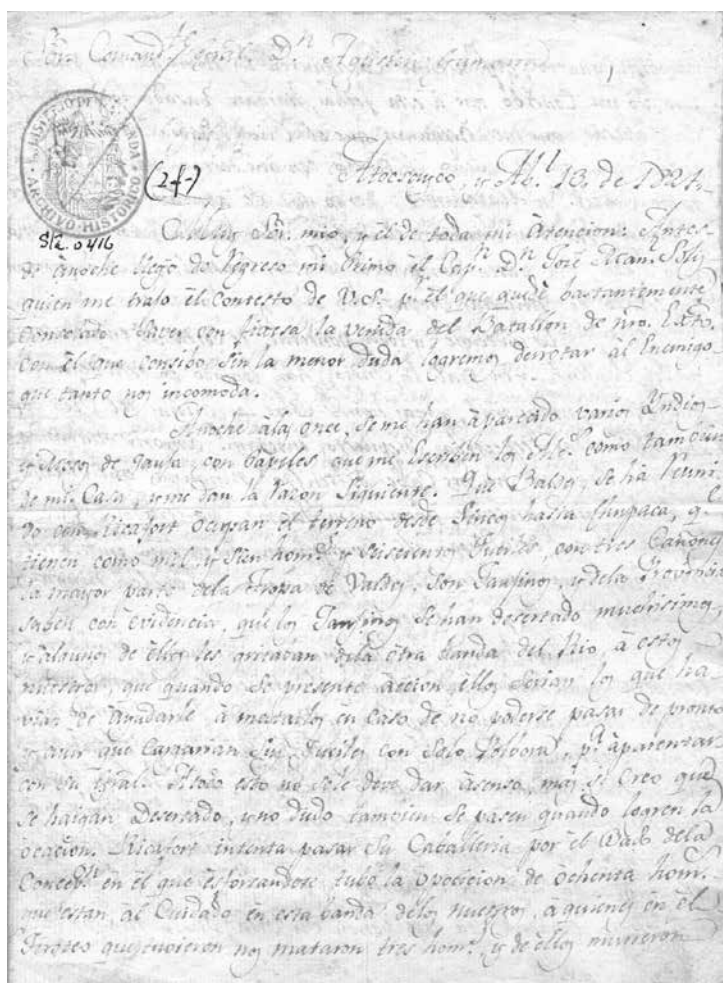 Sõr. Comand.te Gral. d.n Agustin Gamarra
MINISTERIO DE HACIENDA · ARCHIVO HISTORICO
(24)
Ab.l 13. de 1821.
S/2. 0416
Muy Sõr. mio, y el de toda mi Atencion. Antes
de anoche llegó de regreso mi Primo el Cap.n d.n José
quien me trajo el Contesto de V.S. p.r el que quedé bastantemente
Consolado saver con fijesa la venida del Batallon de nro. Exto.
con el que consibo sin la menor duda logremos derrotar al Enemigo
que tanto nos incomoda.
Anoche à las once, Se me han àparecido varios Yndios
de Jauja, con Papeles que me Escriben los como tambien
de mi Casa, y me dan la razon Siguiente. Que Baldes, Se ha Reuni-
do con Ricafort ocupan el terreno desde hasta Chupaca, q.e
tienen como mil, y Sien hom.s y Seiscientos Fuciles, con tres Cañones
la mayor parte dela Tropa de Valdes, Son y dela Provincia
saben con evidencia, que los Se han desertado muchisimos,
y algunos de ellos les gritaban dela otra banda del Rio, à estos
nuestros, que quando Se presente àccion ellos Serian los que ha
vian de à matarlos en caso de no poderse pasar de pronto
que Cargarian Sus Fuciles con Solo Polbora, p.a àparentar
con Su Gral. Atodo esto no Sele deve dar àsenso, mas si Creo que
Se haigan Desertado, y no dudo tambien Se pasen quando logren la
ocacion. Ricafort intenta pasar Su Caballeria por el Bado dela
Concep.n en el que esforzandose tubo la Oposicion de ochenta hom.s
que estan al Cuidado en esta banda delos nuestros, à quienes en el
Tiroteo que tuvieron nos mataron tres hom.s, y de ellos murieron